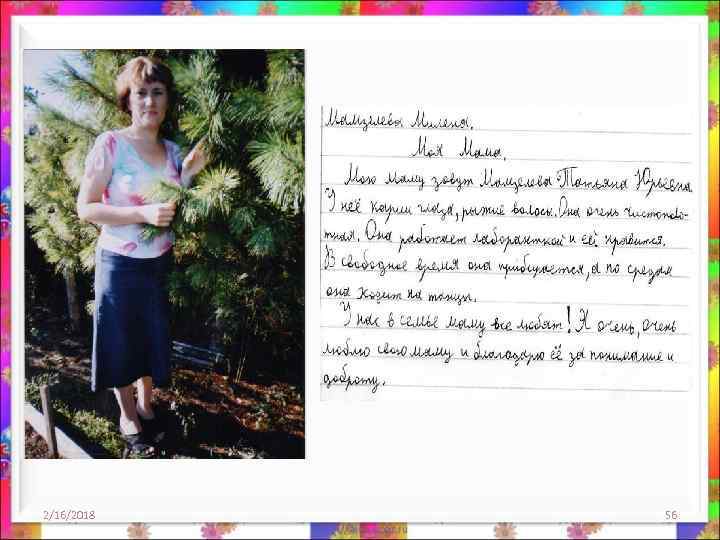 Мамзелева Милена.
Моя Мама.
Мою маму зовут Мамзелева Татьяна Юрьевна
У неё карии глаза, рыжие волосы. Она очень чистопло-
тная. Она работает лаборанткой и ей нравится.
В свободное время она прибирается, а по средам
она ходит на танцы.
У нас в семье маму все любят! Я очень, очень
люблю свою маму и благодарю её за понимание и
доброту.
2/16/2018
56